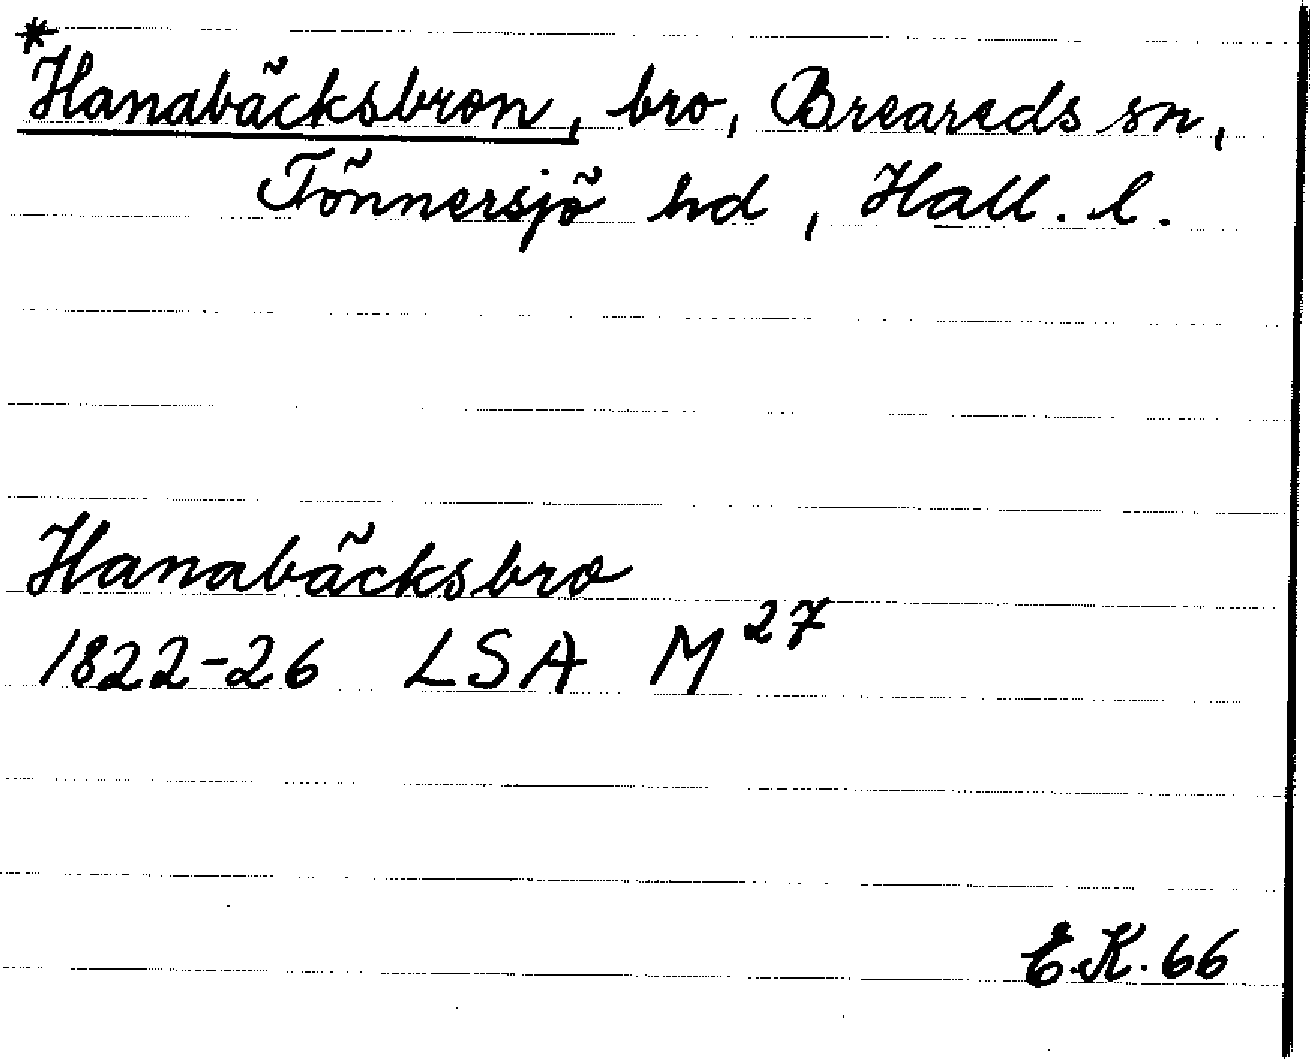 *Hanabäcksbron, bro, Breareds sn,
Tönnersjö hd, Hall. l.
Hanabäcksbro
1822-26 LSA M 27
E.K. 66